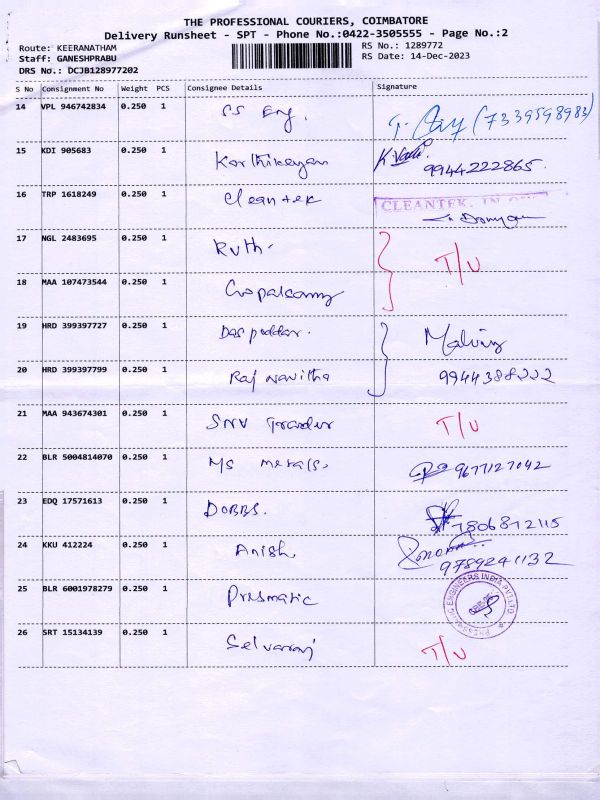 THE PROFESSIONAL COURIERS, COIMBATORE
Delivery Runsheet - SPT - Phone No.:0422-3505555 - Page No.:2
Route: KEERANATHAM RS No.: 1289772
Staff: GANESHPRABU RS Date: 14-Dec-2023
DRS No.: DCJB128977202
S No Consignment No Weight PCS Consignee Details Signature
14 VPL 946742834 0.250 1 SS Eng. (7339598983)
15 KDI 905683 0.250 1 Karthikeyan 9944222865.
16 TRP 1618249 0.250 1 Cleantek CLEANTEK.
17 NGL 2483695 0.250 1 Ruth. T/U
18 MAA 107473544 0.250 1 Gopalsamy
19 HRD 399397727 0.250 1
20 HRD 399397799 0.250 1 Raj Navitha 9944388222
21 MAA 943674301 0.250 1 SNV Trader T/U
22 BLR 5004814070 0.250 1 MS metals. 9677127042
23 EDQ 17571613 0.250 1 DOBBS. 7806812115
24 KKU 412224 0.250 1 Anish. 9789241132
25 BLR 6001978279 0.250 1 Prismatic ENGINEERS INDIA PVT LTD
26 SRT 15134139 0.250 1 Selvaraj T/U